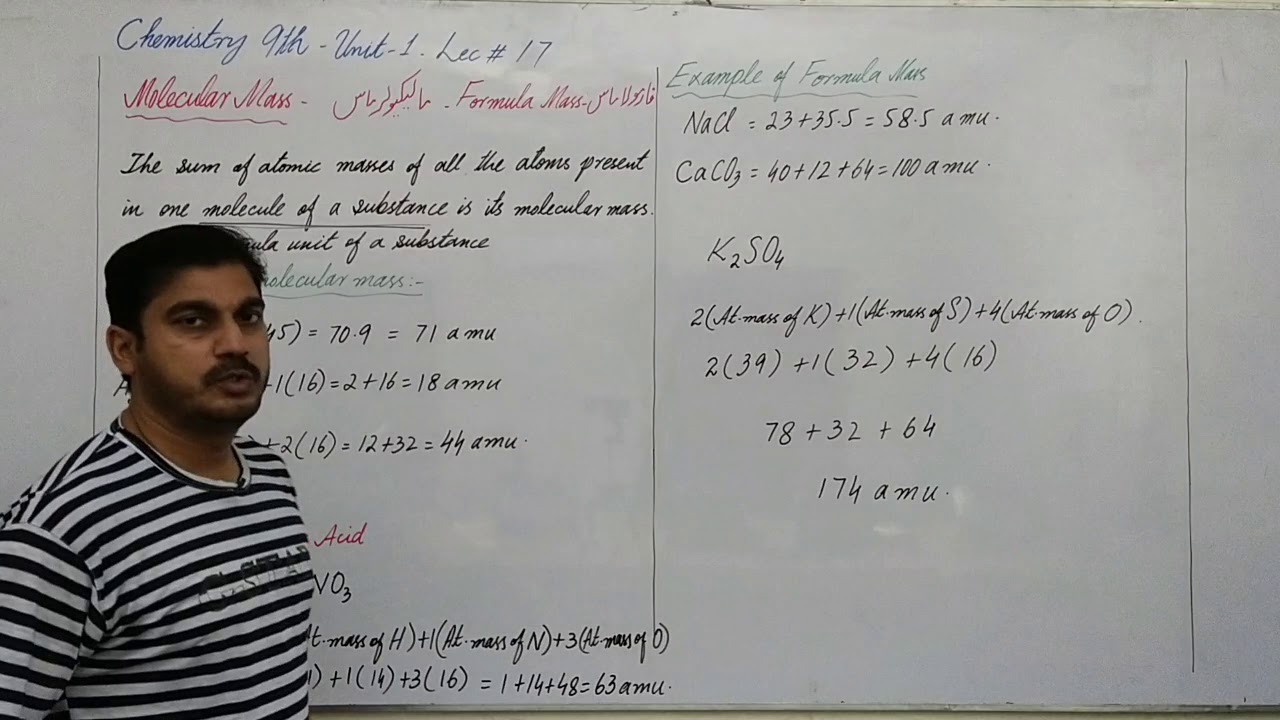 Chemistry 9th - Unit-1. Lec # 17
Molecular Mass - مالیکیولر ماس - Formula Mass - فارمولا ماس
The sum of atomic masses of all the atoms present
in one molecule of a substance is its molecular mass.
unit of a substance
mass:-
45) = 70.9 = 71 amu
+1(16) = 2+16 = 18 amu
+2(16) = 12+32 = 44 amu.
Acid
O3
At. mass of H) + 1(At. mass of N) + 3(At. mass of O)
1) + 1(14) + 3(16) = 1+14+48 = 63 amu.
Example of Formula Mass
NaCl = 23+35.5 = 58.5 amu.
CaCO3 = 40+12+64 = 100 amu.
K2SO4
2(At. mass of K) + 1(At. mass of S) + 4(At. mass of O).
2(39) + 1(32) + 4(16)
78 + 32 + 64
174 amu.